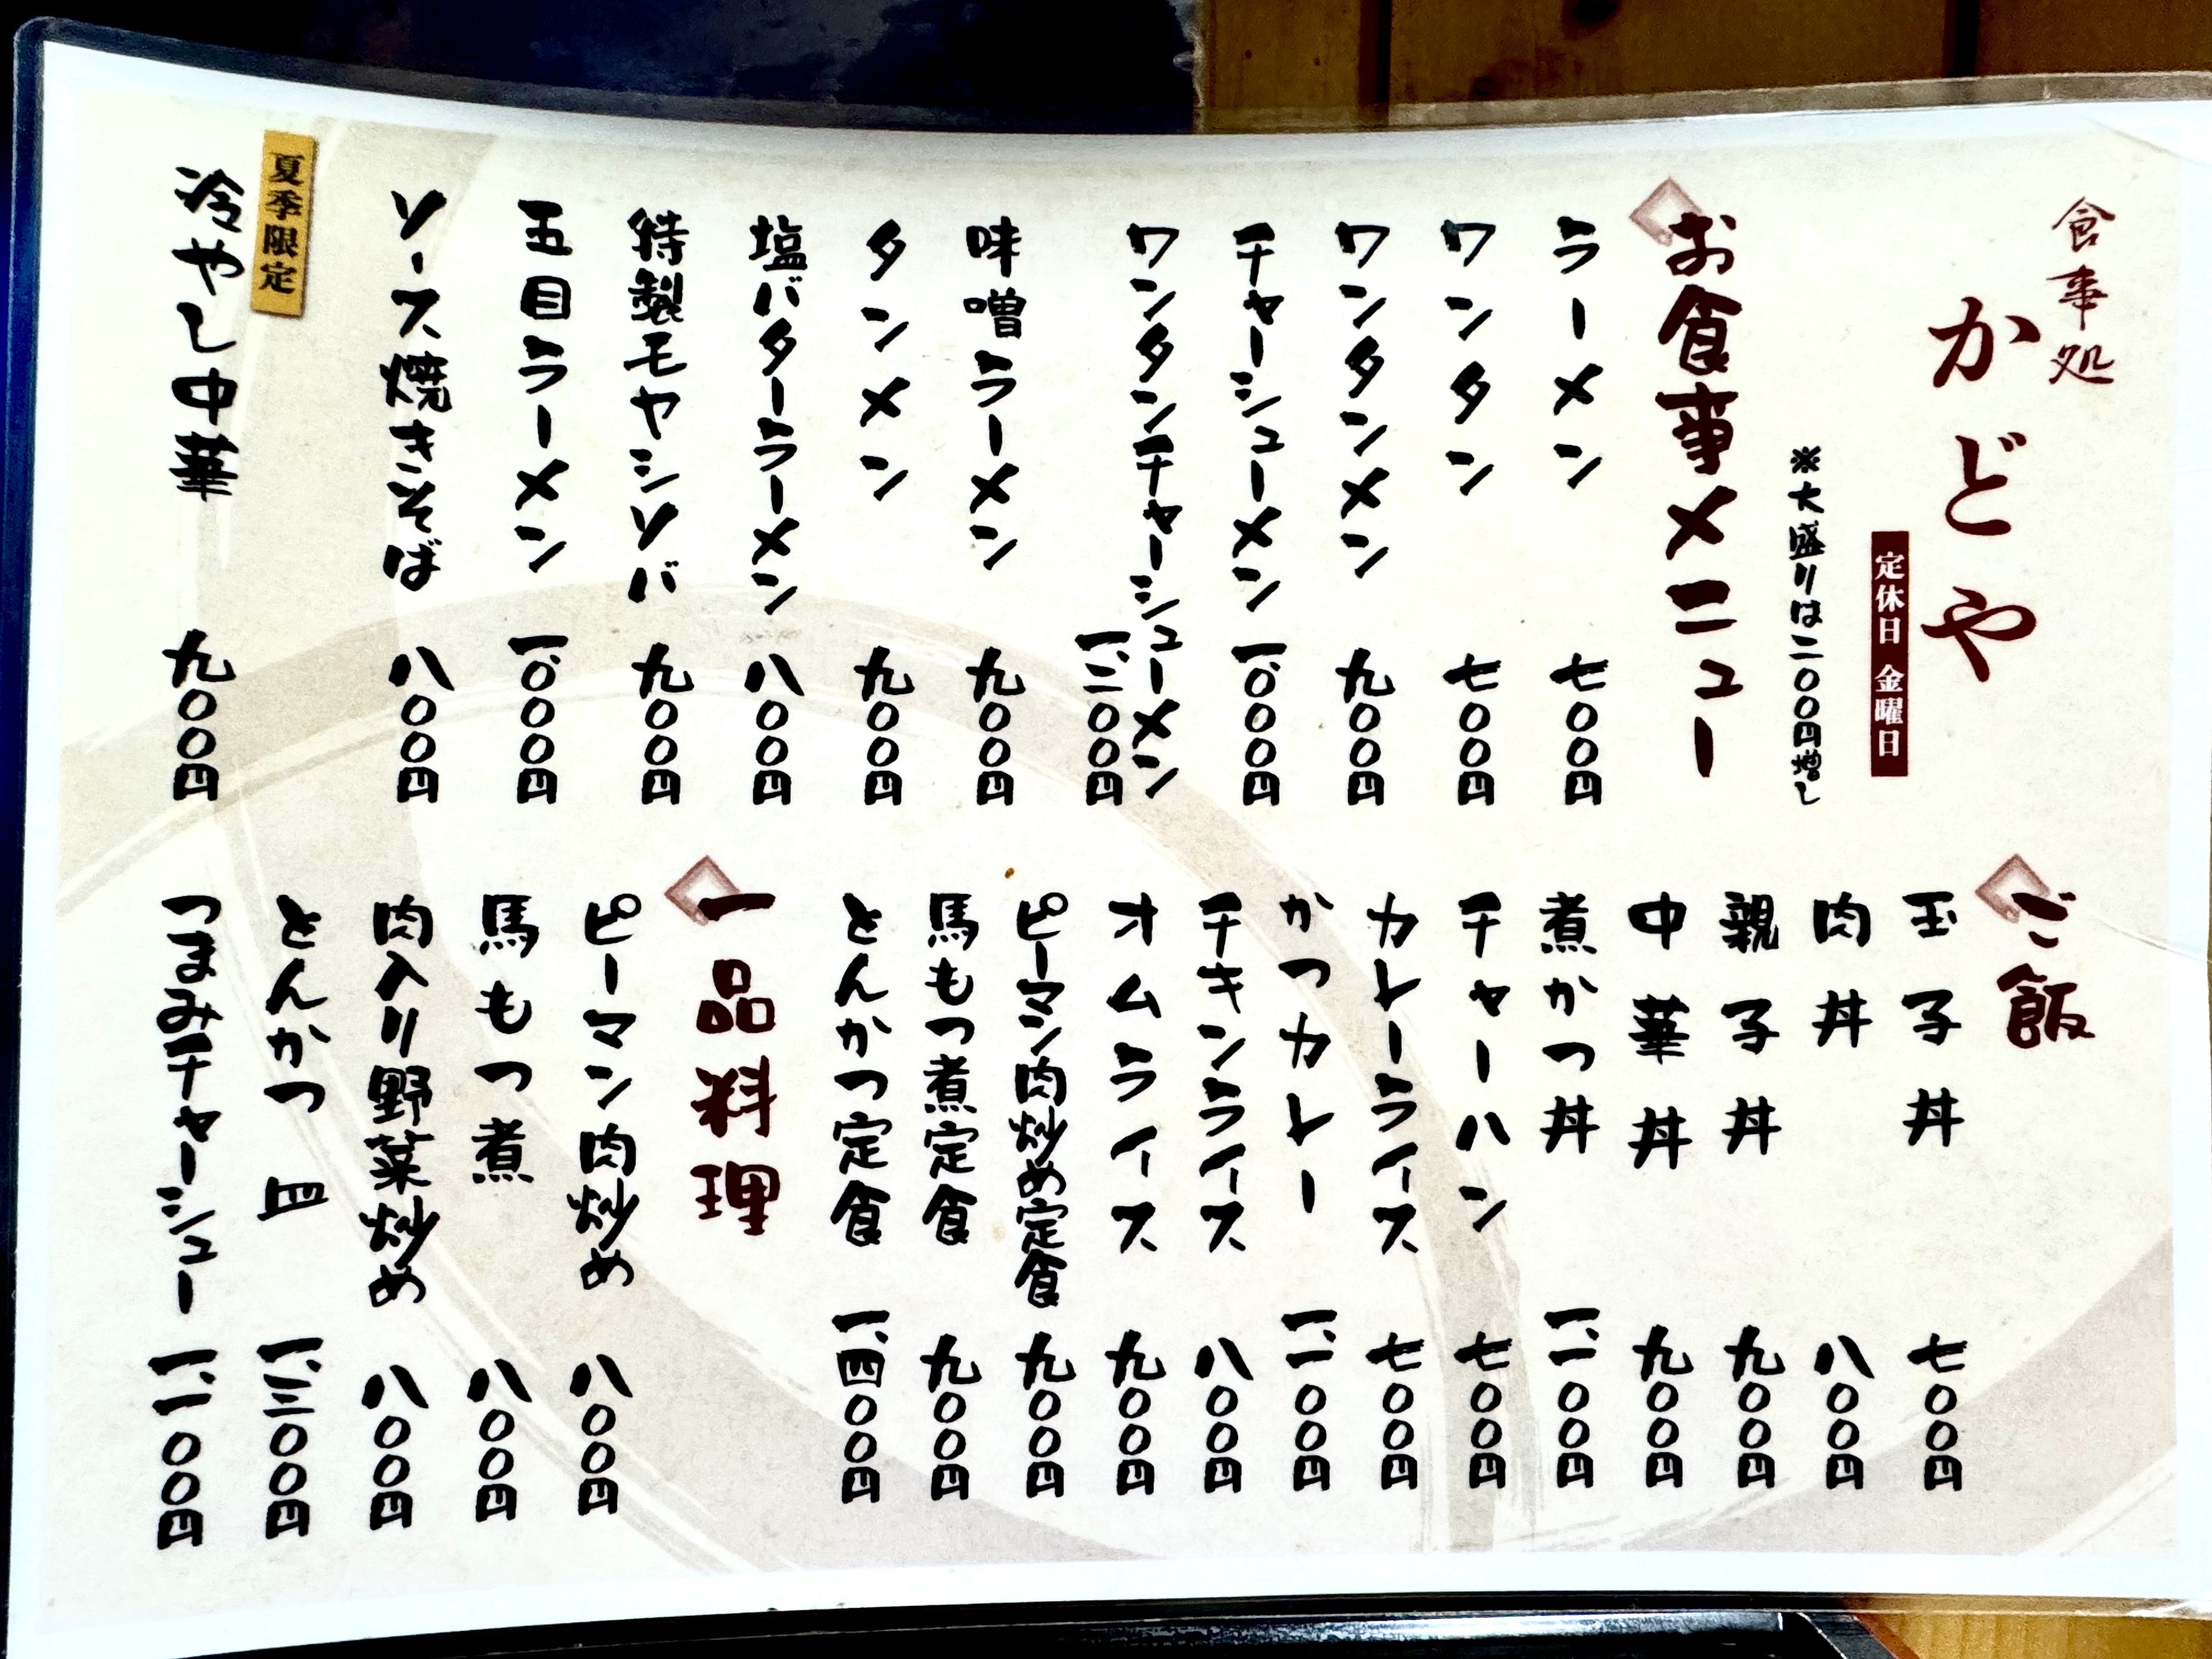 食事処
かどや
定休日 金曜日
※大盛りは二〇〇円増し
お食事メニュー
ラーメン 七〇〇円
ワンタン 七〇〇円
ワンタンメン 九〇〇円
チャーシューメン 一、〇〇〇円
ワンタンチャーシューメン 一、二〇〇円
味噌ラーメン 九〇〇円
タンメン 九〇〇円
塩バターラーメン 八〇〇円
特製モヤシソバ 九〇〇円
五目ラーメン 一、〇〇〇円
ソース焼きそば 八〇〇円
夏季限定
冷やし中華 九〇〇円
ご飯
玉子丼 七〇〇円
肉丼 八〇〇円
親子丼 九〇〇円
中華丼 九〇〇円
煮かつ丼 一、一〇〇円
チャーハン 七〇〇円
カレーライス 七〇〇円
かつカレー 一、一〇〇円
チキンライス 八〇〇円
オムライス 九〇〇円
ピーマン肉炒め定食 九〇〇円
馬もつ煮定食 九〇〇円
とんかつ定食 一、四〇〇円
一品料理
ピーマン肉炒め 八〇〇円
馬もつ煮 八〇〇円
肉入り野菜炒め 八〇〇円
とんかつ 皿 一、三〇〇円
つまみチャーシュー 一、一〇〇円